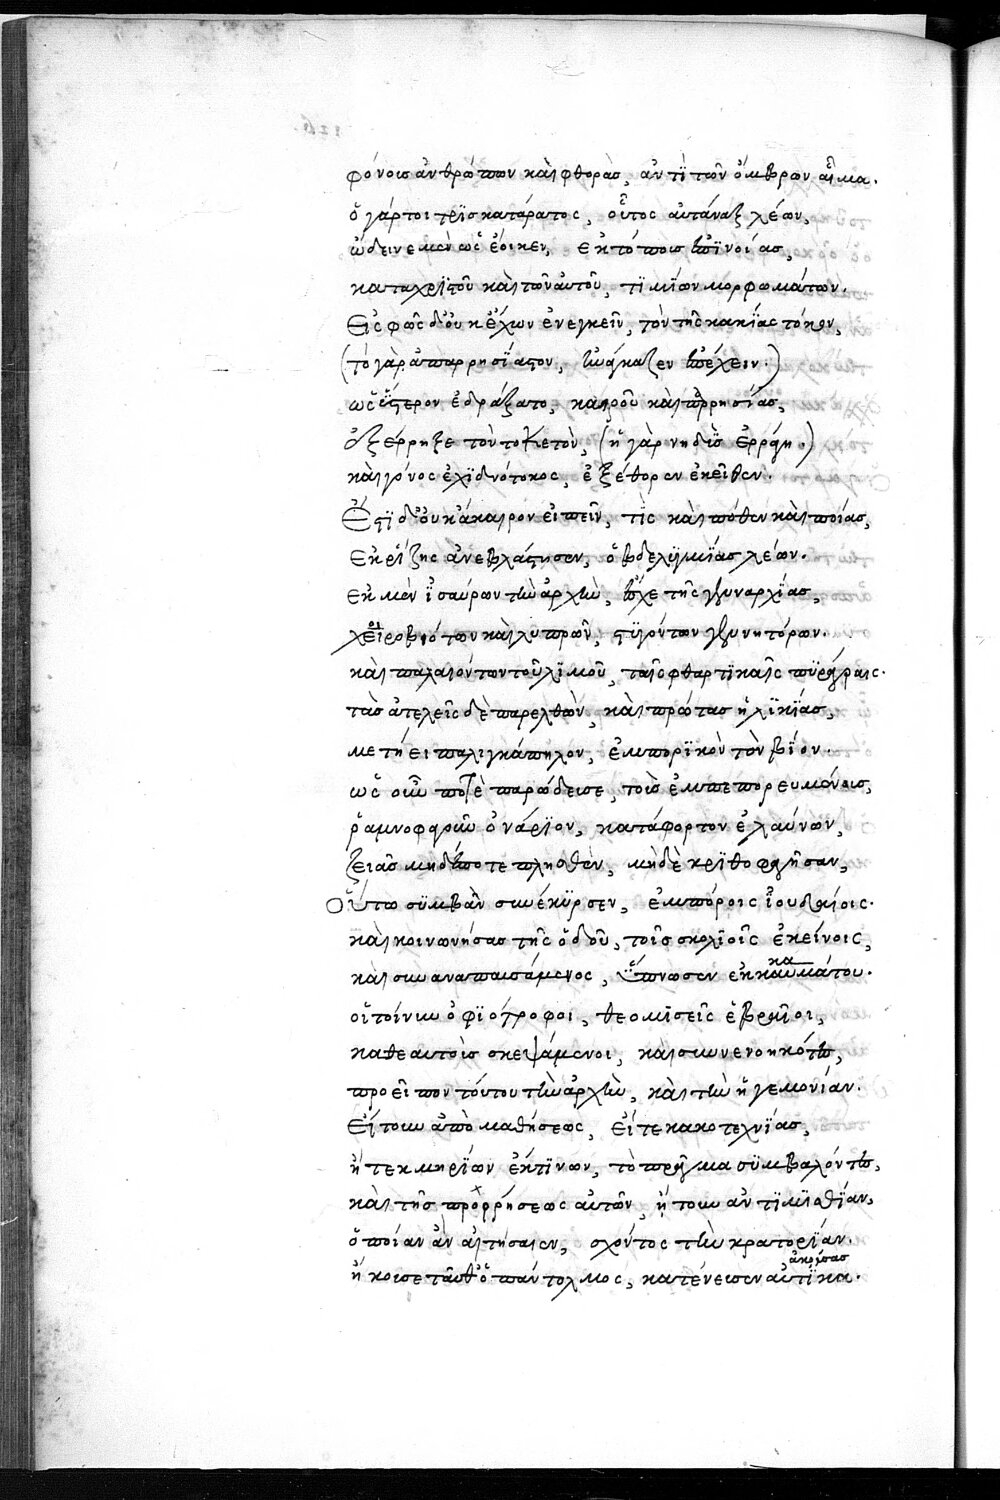 φόνοις ἀνθρώπων καὶ φθορὰς, ἀντὶ τῶν ὄμβρων αἷμα.
ὁ γάρτοι τρὶς κατάρατος, οὗτος αὐτάναξ λέων,
ὤδεινε μὲν ὡς ἔοικεν, ἐκτόποις ἐπινοίας,
καταχριστοῦ καὶ τῶν αὐτοῦ, τιμίων μορφωμάτων.
Εἰς φῶς δ' οὐκ ἔχων ἐνεγκεῖν, τὸν τῆς κακίας τόκον,
(τὸ γὰρ ἀπαρρησίαστον, ἠνάγκαζεν ἐπέχειν.)
ὡς ὕστερον ἐδράξατο, καιροῦ καὶ παρρησίας,
ἐξέρρηξε τὸν τοκετὸν, (ἡ γὰρ νηδὺς ἐρράγη.)
καὶ γόνος ἐχιδνότοκος, ἐξέθορεν ἐκεῖθεν.
Ἔστι δ' οὐκ ἄκαιρον εἰπεῖν, τίς καὶ πόθεν καὶ ποίας,
ἐκ ρίζης ἀνεβλάστησεν, ὁ βδελυγμίας λέων.
ἐκ μὲν ἰσαύρων τὴν ἀρχὴν, εἶχε τῆς γεναρχίας,
χειροβιότων καὶ λυπρῶν, στυγόντων γεννητόρων.
καὶ παλαιόντων τοῦ λιμοῦ, ταῖς φθαρτικαῖς πυράγραις.
τὰς ἀτελεῖς δὲ παρελθὼν, καὶ πρώτας ἡλικίας,
μετήει παλιγκάπηλον, ἐμπορικὸν τὸν βίον.
ὡς οὖν ποτὲ παρώδευσε, τοῖς ἐμπεπορευμένοις,
ῥαμνοφαγοῦν ὀνάριον, κατάφορτον ἐλαύνων,
ζειᾶς μηδέποτε πλησθὲν, μηδὲ κριθοφαγῆσαν,
Οὕτω συμβὰν συνέκυρσεν, ἐμπόροις ἰουδαίοις.
καὶ κοινωνήσας τῆς ὁδοῦ, τοῖς σκολιοῖς ἐκείνοις,
καὶ συναναπαυσάμενος, ὕπνωσεν ἐκ καμάτου.
οἱ τοίνυν ὀφιότροφοι, θεομισεῖς ἑβραῖοι,
καθεαυτοὺς σκεψάμενοι, καὶ συννενοηκότες,
προεῖπον τούτου τὴν ἀρχὴν, καὶ τὴν ἡγεμονίαν.
Εἴτουν ἀπὸ μαθήσεως, εἴτε κακοτεχνίας,
ἢ τεκμηρίων ἐκτινων, τὸ πρᾶγμα συμβαλόντες,
καὶ τῆς προρρήσεως αὐτῶν, ἤτουν ἀντιμισθίαν,
ὁποίαν ἂν αἰτήσαιεν, σχόντος τὴν κρατορίαν.
ἀκούσας
ἤκουσε ταῦθ' ὁ πάντολμος, κατένευσεν αὐτίκα.